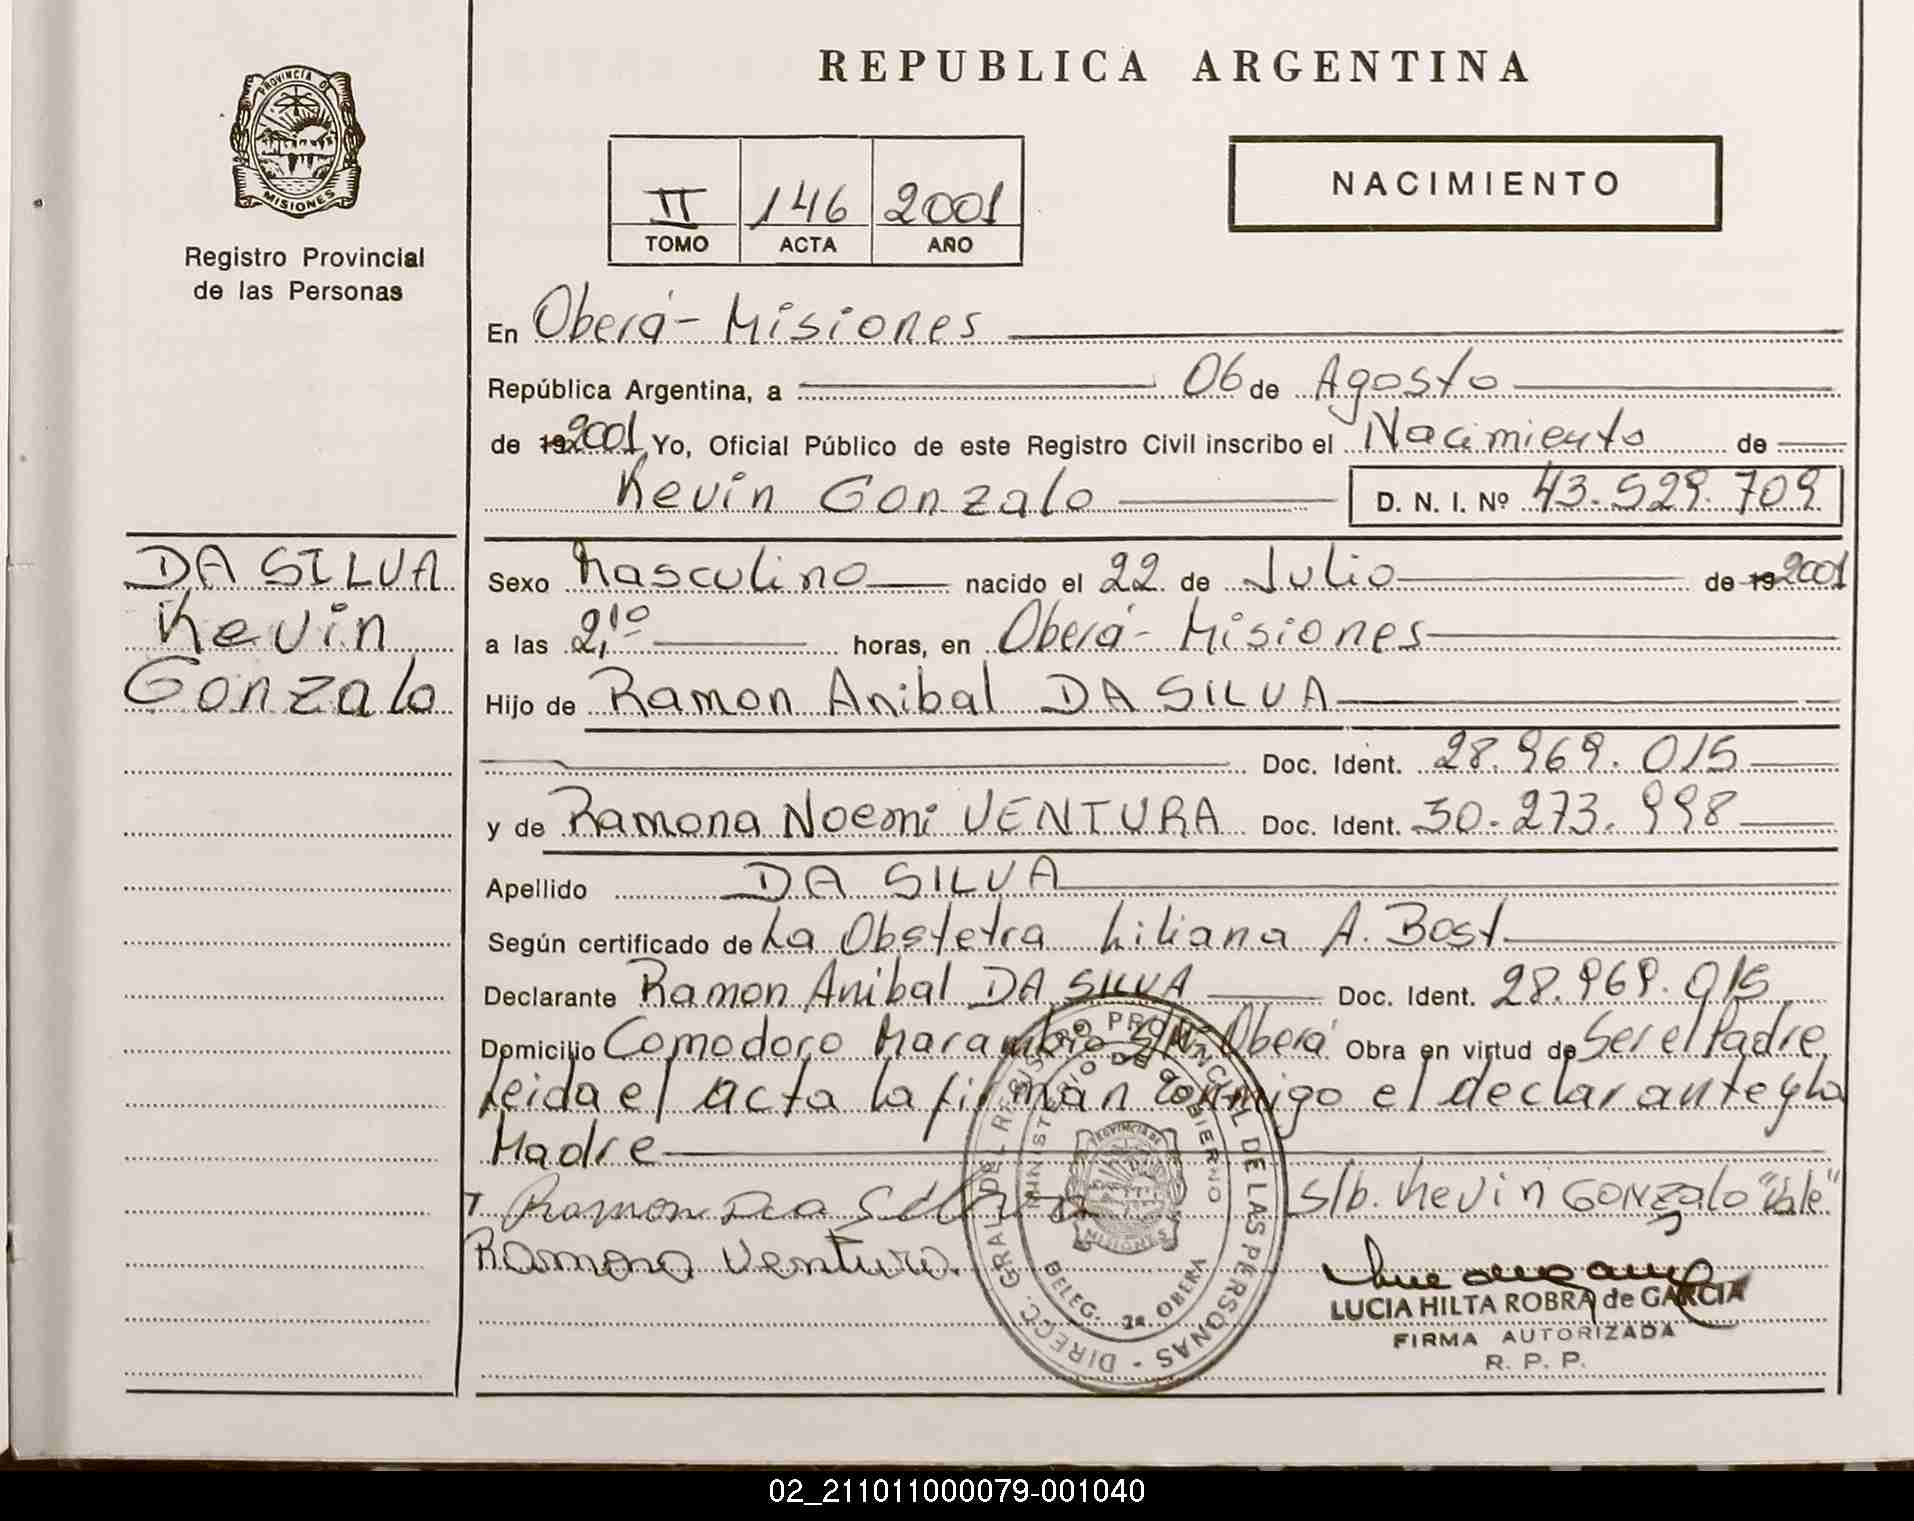 REPUBLICA ARGENTINA
PROVINCIA D
MISIONES
Registro Provincial
de las Personas
II 146 2001
TOMO ACTA AÑO
NACIMIENTO
En Oberá - Misiones
República Argentina, a 06 de Agosto
de 19 2001 Yo, Oficial Público de este Registro Civil inscribo el Nacimiento de
Kevin Gonzalo D. N. I. Nº 43.529.709
DA SILVA
Kevin
Gonzalo
Sexo Masculino nacido el 22 de Julio de 19 2001
a las 2,10 horas, en Oberá - Misiones
Hijo de Ramon Anibal DA SILVA
Doc. Ident. 28.969.015
y de Ramona Noemi VENTURA Doc. Ident. 30.273.998
Apellido DA SILVA
Según certificado de La Obstetra Liliana A. Bost
Declarante Ramon Anibal DA SILVA Doc. Ident. 28.969.015
Domicilio Comodoro Marambio S/Nº Oberá Obra en virtud de Ser el Padre
Leida el acta la firman conmigo el declarante y la
Madre
Ramon Da Silva
S/b. Kevin Gonzalo "Vale"
Ramona Ventura
DIRECC. GRAL DEL REGISTRO PROVINCIAL DE LAS PERSONAS -
MINISTERIO DE GOBIERNO
PROVINCIA DE
MISIONES
DELEG. 2ª OBERA
LUCIA HILTA ROBRA de GARCIA
FIRMA AUTORIZADA
R. P. P.
02_211011000079-001040